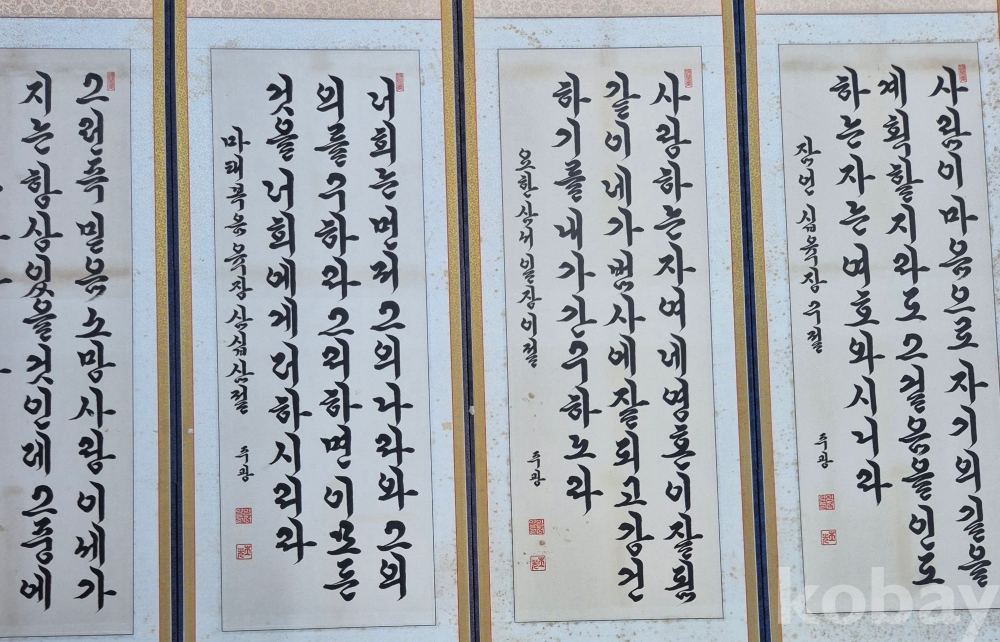 사람이마음으로자기의길을
계획할지라도그걸음을인도
하는자는여호와시니라
잠언 십육장 구절 주광
사랑하는자여네영혼이잘됨
같이네가범사에잘되고강건
하기를내가간구하노라
요한삼서일장이절 주광
너희는먼저그의나라와그의
의를구하라그리하면이모든
것을너희에게더하시리라
마태복음육장삼십삼절 주광
그런즉믿음소망사랑이세가
지는항상있을것인데그중에
kobay